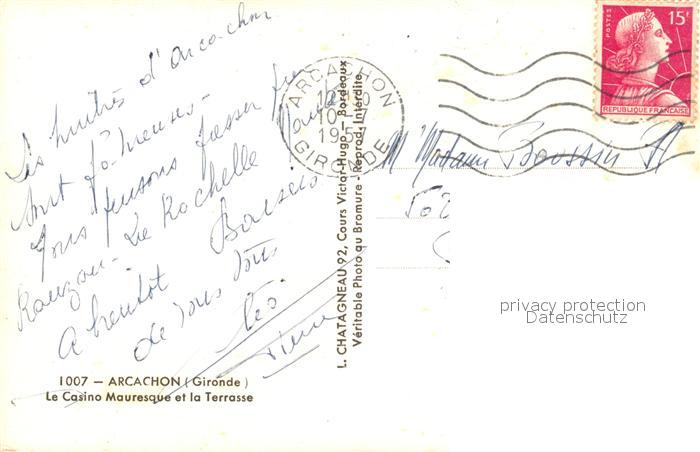 Les huîtres d'Arcachon
sont fameuses -
Nous pensons passer
Rouzon - La Rochelle
A bientôt Baisers
de nous tous
Léo
Pierre
1007 — ARCACHON (Gironde)
Le Casino Mauresque et la Terrasse
L. CHATAGNEAU 92, Cours Victor-Hugo — Bordeaux
Véritable Photo au Bromure - Reprod. Interdite.
ARCACHON
GIRONDE
POSTES
15F
REPUBLIQUE FRANÇAISE
M Madame Boussin A
privacy protection
Datenschutz